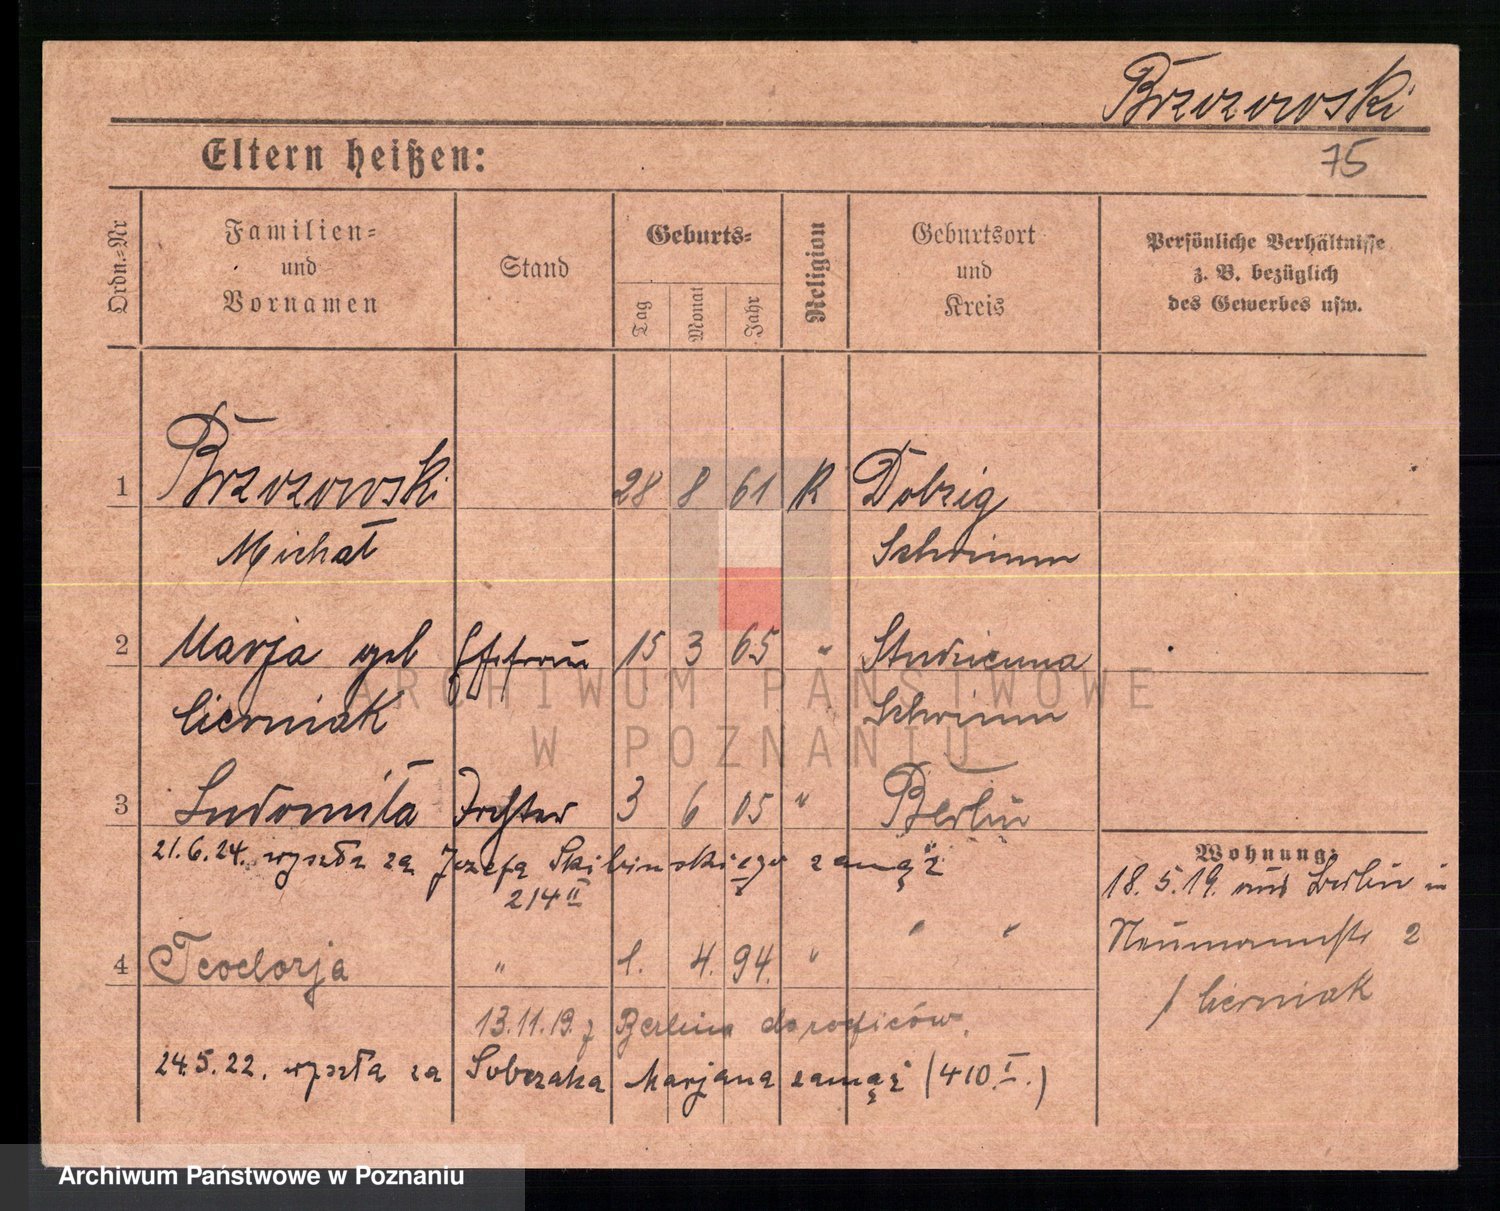 Brzozowski
Eltern heißen:
75
Ordn.-Nr
Familien-
und
Vornamen
Stand
Geburts-
Tag
Monat
Jahr
Religion
Geburtsort
und
Kreis
Persönliche Verhältnisse
z. B. bezüglich
des Gewerbes usw.
1 Brzozowski 28 8 61 K Dobzig
Michał Schrimm
2 Marja geb Ehefrau 15 3 65 "
Cierniak Schrimm
3 Ludomiła Tochter 3 6 05 " Berlin
21.6.24. wyszła za Jozefa Skibinskiego zamąż
214 II
Wohnung:
18.5.19. aus Berlin in
Neumannstr 2
/ Cierniak
" "
4 Teodorja " 1. 4. 94. "
13.11.19. z Berlina do rodziców.
24.5.22. wyszła za Sobczaka Marjana zamąż (410 I.)
ARCHIWUM PAŃSTWOWE
W POZNANIU
Archiwum Państwowe w Poznaniu